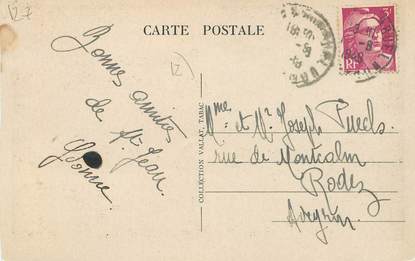 127
CARTE POSTALE
Bonnes amitiés
de St Jean.
Yvonne.
COLLECTION VALLAT, TABAC
Mme et Mr Joseph Puech
rue de Montcalm
Rodez
Aveyron
RF